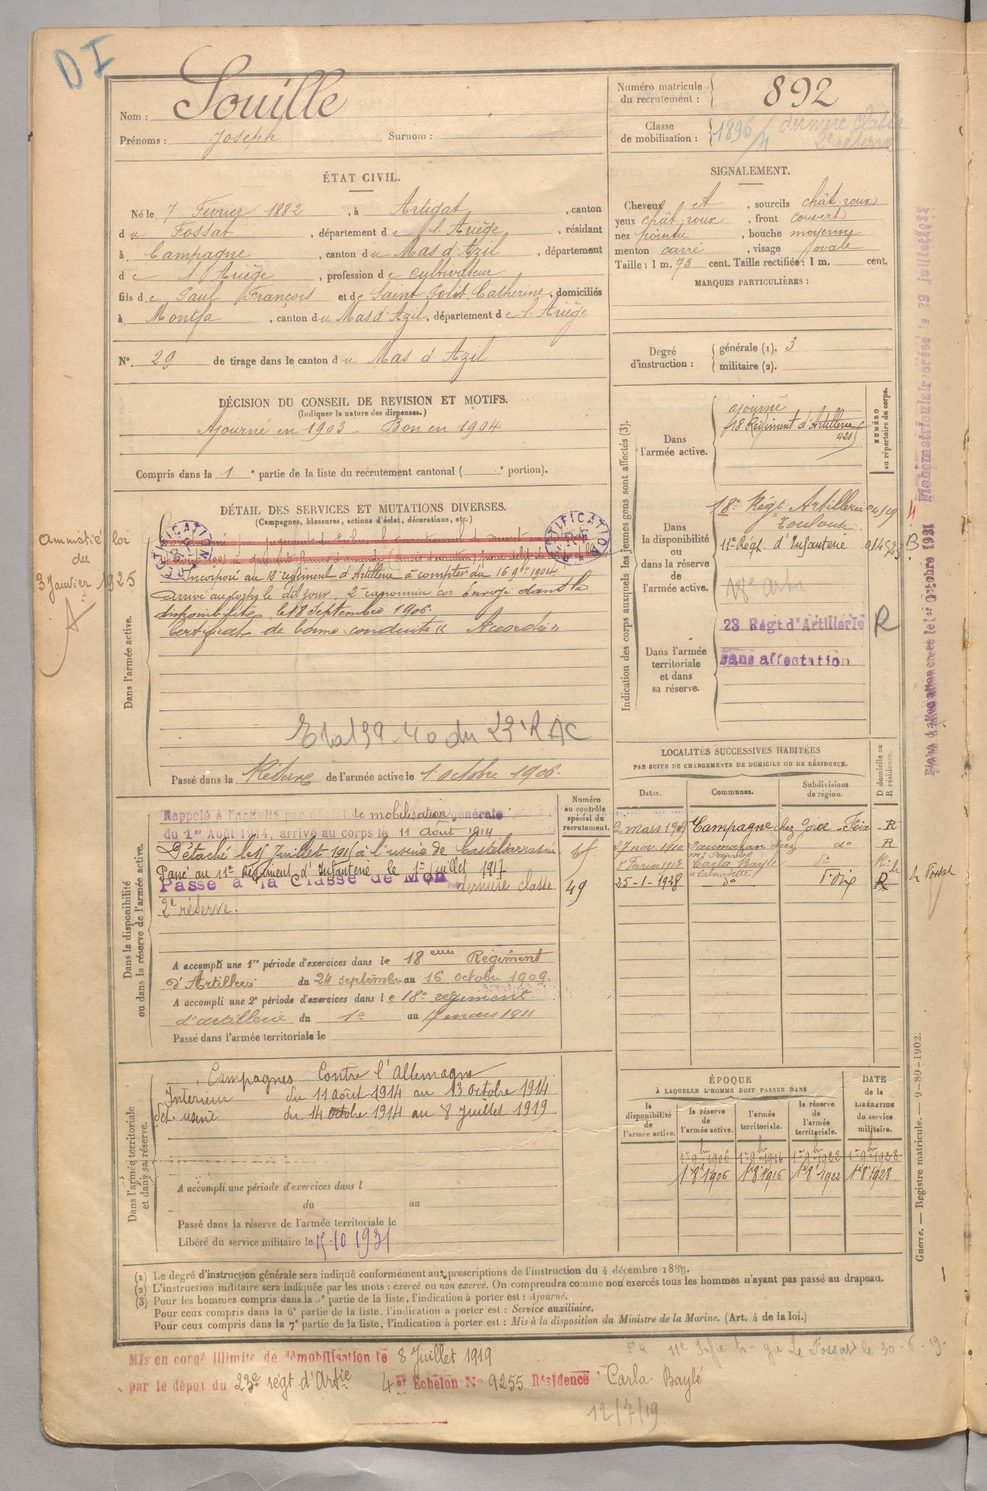 DI
Nom : Souille
Prénoms : Joseph Surnom :
Numéro matricule du recrutement : 892
Classe de mobilisation : 1896/4 dernière classe 2e réserve
ÉTAT CIVIL.
Né le 7 Février 1882, à Artigat, canton
du Fossat, département de l'Ariège, résidant
à Campagne, canton du Mas d'Azil, département
de l'Ariège, profession de cultivateur
fils de Paul François et de Saint Jolit Catherine, domiciliés
à Montfa, canton du Mas d'Azil, département de l'Ariège
N°. 29 de tirage dans le canton du Mas d'Azil
SIGNALEMENT.
Cheveux et, sourcils chât roux
yeux chât roux, front couvert
nez pointu, bouche moyenne
menton carré, visage ovale
Taille : 1 m. 73 cent. Taille rectifiée : 1 m. cent.
MARQUES PARTICULIÈRES :
Degré d'instruction : générale (1). 3
militaire (2).
DÉCISION DU CONSEIL DE REVISION ET MOTIFS.
(Indiquer la nature des dispenses.)
Ajourné en 1903 Bon en 1904
Compris dans la 1e partie de la liste du recrutement cantonal ( e portion).
Indication des corps auxquels les jeunes gens sont affectés (3).
NUMÉRO au répertoire du corps.
Dans l'armée active.
ajourné
18 Régiment d'Artillerie
421
Dans la disponibilité ou dans la réserve de l'armée active.
18e Régt Artillerie
Toulouse
11e Régt d'Infanterie
18e arti
23 Régt d'Artillerie R
Dans l'armée territoriale et dans sa réserve.
sans affectation
DÉTAIL DES SERVICES ET MUTATIONS DIVERSES.
(Campagnes, blessures, actions d'éclat, décorations, etc.)
amnistié loi
du
3 Janvier 1925
Dans l'armée active.
Incorporé au 18e régiment d'Artillerie à compter du 16 9bre 1904
Arrivé au corps le dit jour, 2e canonnier cor Envoyé dans la
disponibilité le 18 Septembre 1906.
Certificat de bonne conduite « Accordé »
Etat 39-40 du 23e RAC
Passé dans la Réserve de l'armée active le 1 octobre 1906.
Dans la disponibilité ou dans la réserve de l'armée active.
Numéro au contrôle spécial du recrutement.
Rappelé à l'activité le mobilisation générale
du 1er Août 1914, arrivé au corps le 11 août 1914
Détaché le 15 Juillet 1916 à l'usine de Castelsarrasin
Passé au 11e Régiment d'Infanterie le 1er Juillet 1917
Passé à la Classe de Mon dernière classe
2e réserve.
49
A accompli une 1re période d'exercices dans le 18eme Régiment
d'Artillerie du 24 septembre au 16 octobre 1909.
A accompli une 2e période d'exercices dans le 18e régiment
d'artillerie du 1er au 17 mars 1911
Passé dans l'armée territoriale le
LOCALITÉS SUCCESSIVES HABITÉES
PAR SUITE DE CHANGEMENTS DE DOMICILE OU DE RÉSIDENCE.
Dates. Communes. Subdivisions de région. D domicile ou R résidence.
2 mars 1907 Campagne Foix R
27 nov. 1910 do R
1 Février 1918 Carla Bayle do
25-1-1928 do Foix R
Dans l'armée territoriale et dans sa réserve.
Campagnes Contre l'Allemagne
Intérieur du 11 août 1914 au 13 octobre 1914
dét. usine du 14 octobre 1914 au 8 juillet 1919
A accompli une période d'exercices dans l
du au
Passé dans la réserve de l'armée territoriale le
Libéré du service militaire le 15-10 1931
ÉPOQUE
À LAQUELLE L'HOMME DOIT PASSER DANS
la disponibilité de l'armée active. la réserve de l'armée active. l'armée territoriale. la réserve de l'armée territoriale.
DATE de la LIBÉRATION du service militaire.
1-9bre-1906 1-9bre-1916 1-9bre-1922 1-9bre-1928
1er 8bre 1906 1er 8bre 1916 1er 8bre 1922 1er 8bre 1928
Guerre. — Registre matricule. — 9-89-1902.
(1) Le degré d'instruction générale sera indiqué conformément aux prescriptions de l'instruction du 4 décembre 1889.
(2) L'instruction militaire sera indiquée par les mots : exercé ou non exercé. On comprendra comme non exercés tous les hommes n'ayant pas passé au drapeau.
(3) Pour les hommes compris dans la 5e partie de la liste, l'indication à porter est : Ajourné.
Pour ceux compris dans la 6e partie de la liste, l'indication à porter est : Service auxiliaire.
Pour ceux compris dans la 7e partie de la liste, l'indication à porter est : Mis à la disposition du Ministre de la Marine. (Art. 4 de la loi.)
Mis en congé illimité de démobilisation le 8 Juillet 1919
par le dépôt du 23e régt d'Artie 4e Echelon N° 9255 Résidence Carla-Bayle
12/7/19